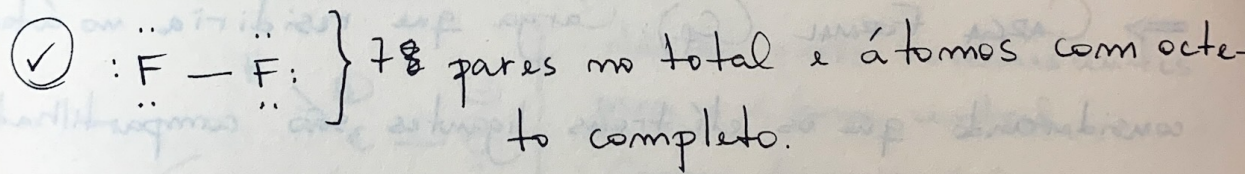 ✓ :F̤̈ — F̤̈: } 7 pares no total e átomos com octe-
to completo.